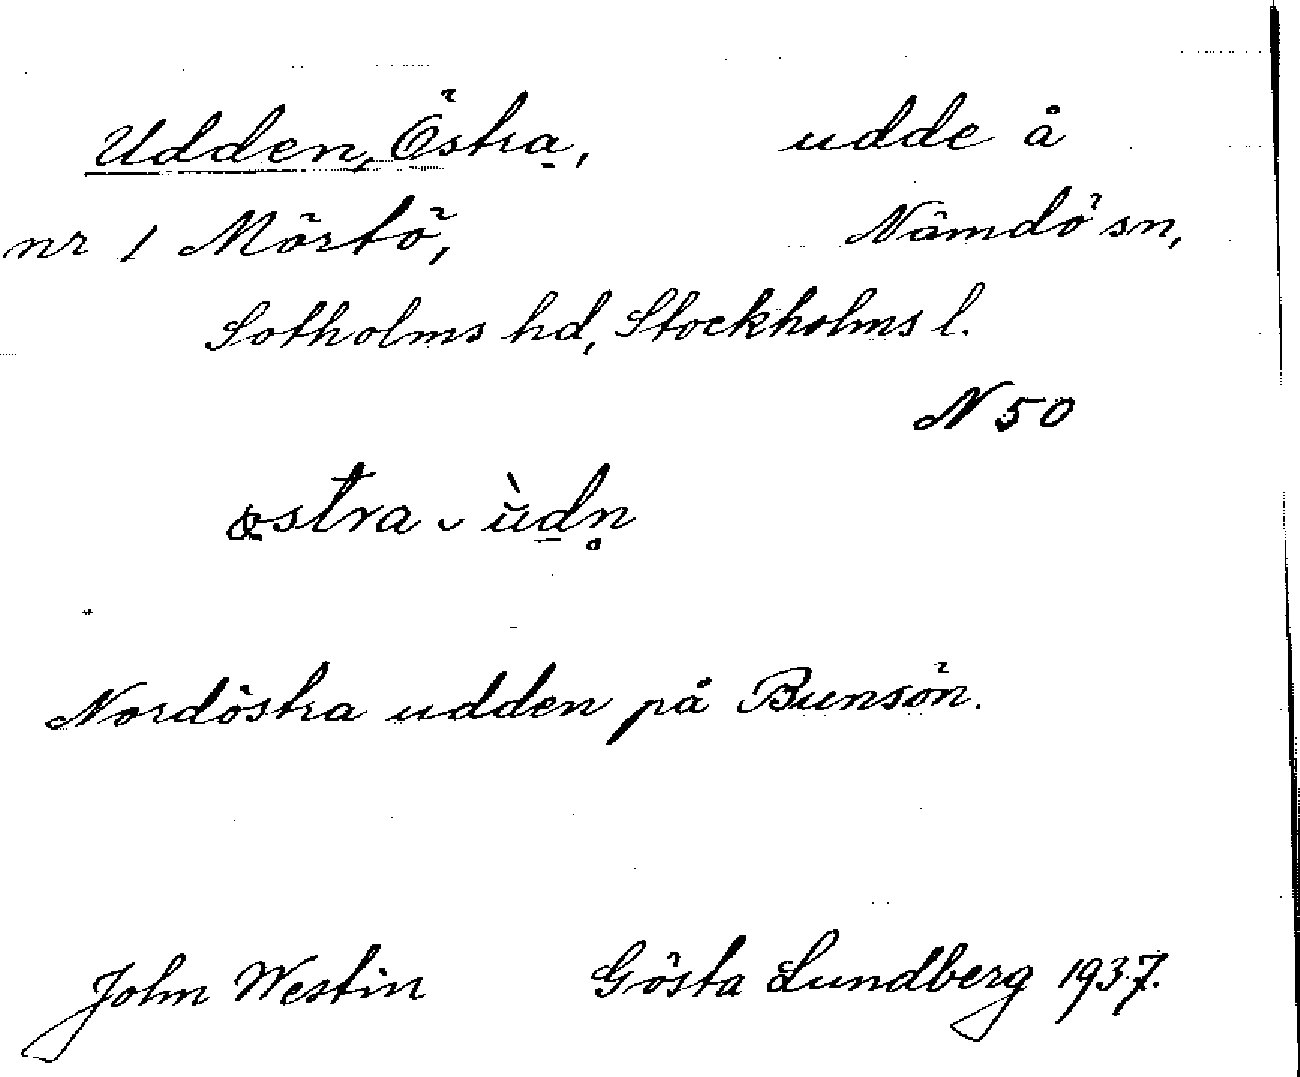 Udden, Östra, udde å
nr 1 Mörtö, Nämdö sn,
Sotholms hd, Stockholms l.
N 50
östra ‿ ùdn̥
Nordöstra udden på Bunsön.
John Westin Gösta Lundberg 1937.